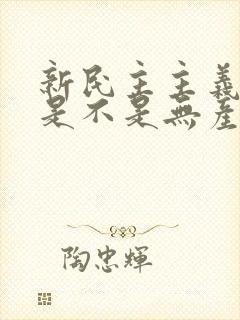 新民主主義
是不是無產
陶忠輝